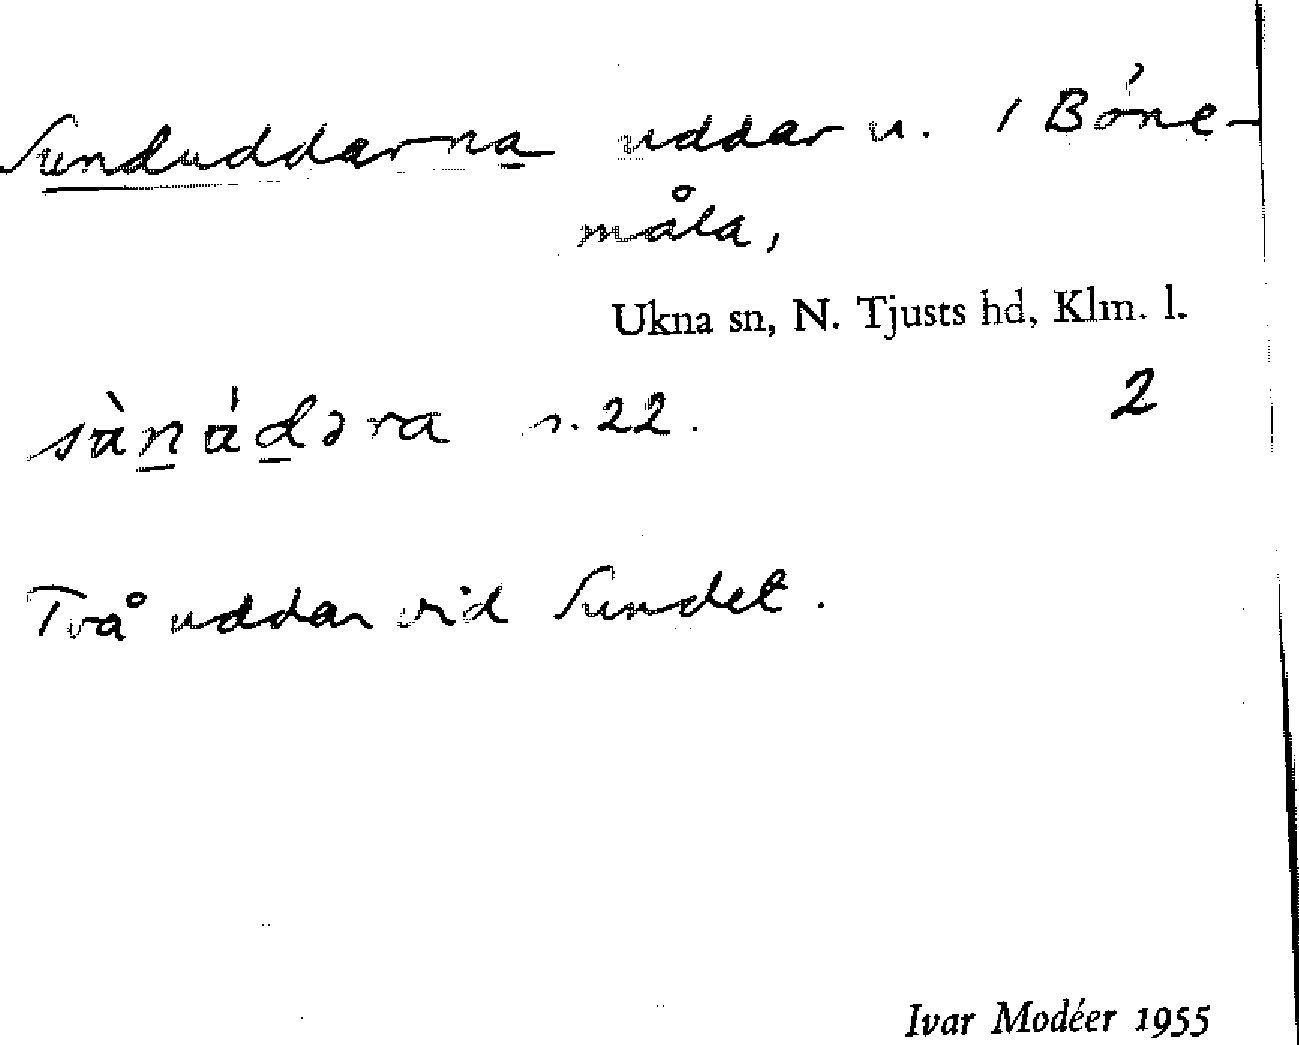 Sunduddarna uddar u. 1 Böne-
måla,
Ukna sn, N. Tjusts hd, Klm. l.
2
s. 22.
Två uddar vid Sundet.
Ivar Modéer 1955